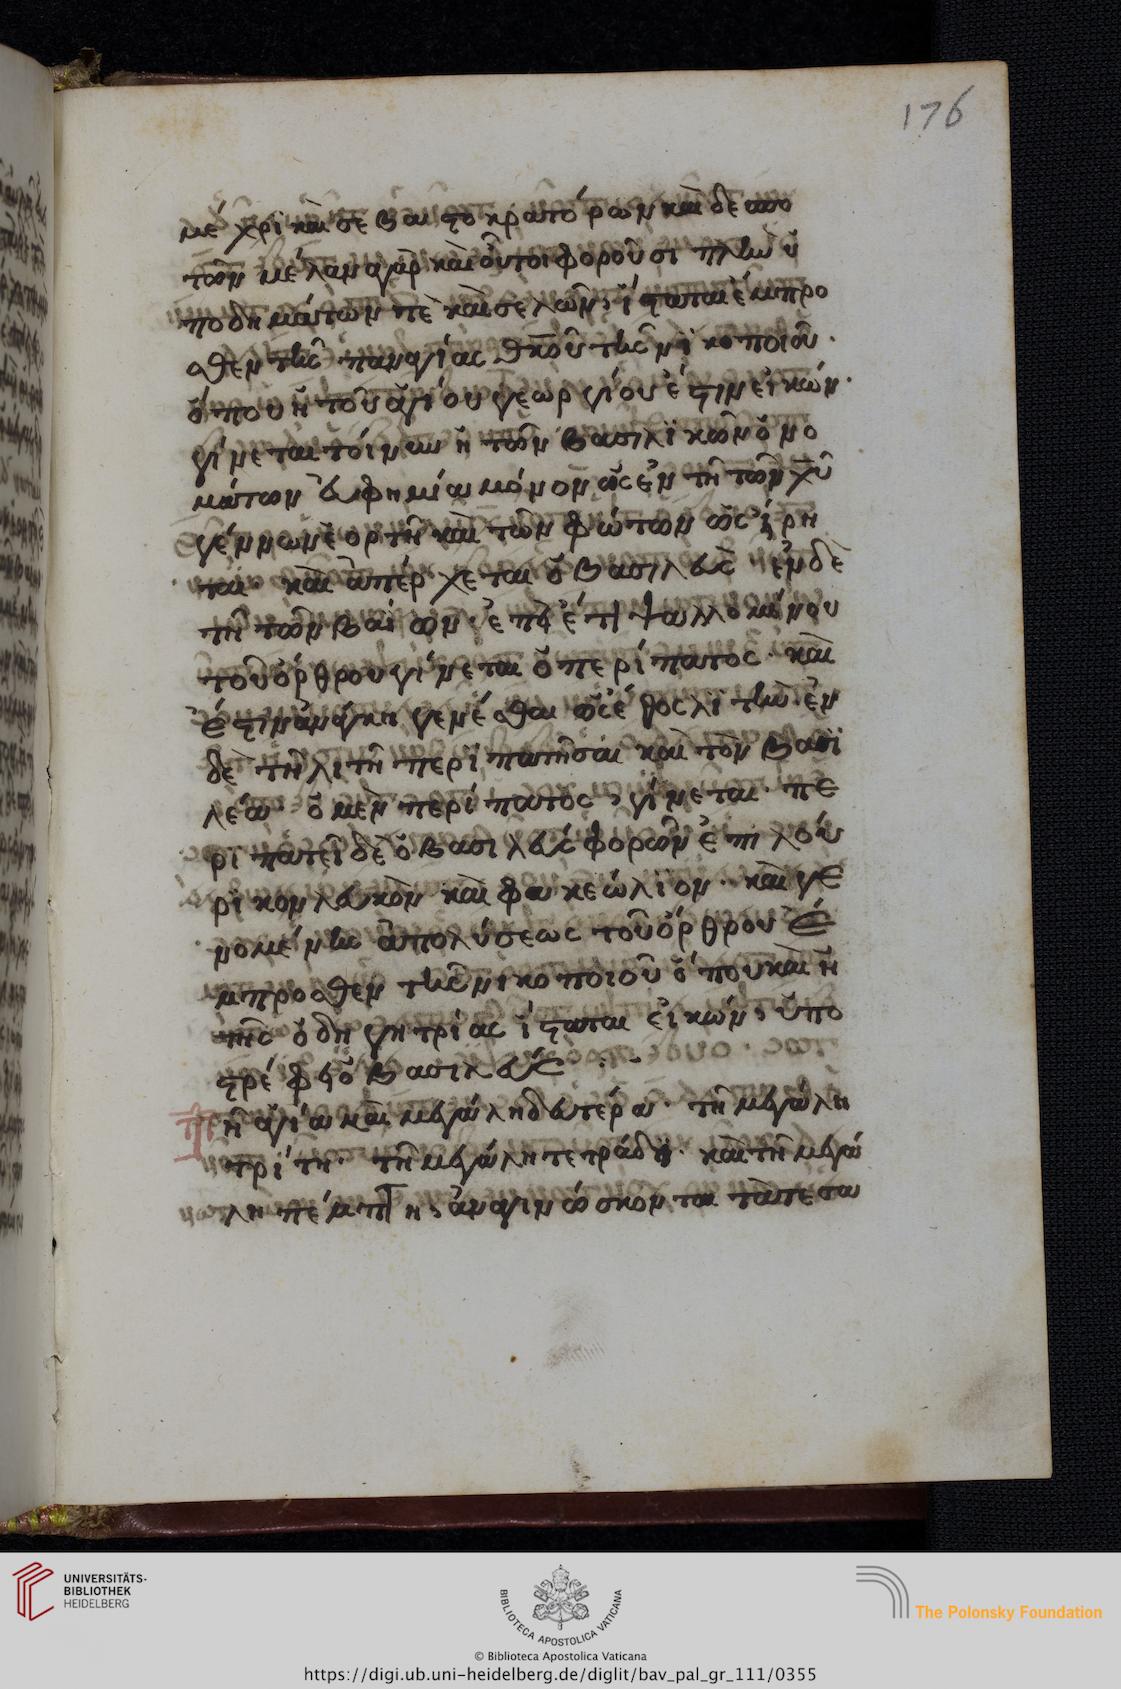 176
μέχρι καὶ σεβαστοκρατόρων καὶ δεσπο
τῶν μέλαν γὰρ καὶ οὗτοι φοροῦσι πλὴν ὑ
ποδημάτων τὲ καὶ σελῶν, ἵσταται ἔμπρο
σθεν τῆς παναγίας θκου τῆς νικοποιοῦ.
ὅπου ἡ τοῦ ἁγίου γεωργίου ἔστιν εἰκών.
γίνεται τοίνυν ἡ τῶν βασιλικῶν ὀνο
μάτων εὐφημία μόνον ὡς ἐν τῇ τῶν χυ
γέννων ἑορτῇ καὶ τῶν φώτων ὡς εἴρη
ται καὶ ἀπέρχεται ὁ βασιλεὺς ἐν δὲ
τῇ τῶν βαΐων ἔτι ψαλλομένου
τοῦ ὄρθρου γίνεται ὁ περίπατος. καὶ
ἔστιν ἀνάγκη γενέσθαι ὡς ἔθος λιτὴν. ἐν
δὲ τῇ λιτῇ περιπατῆσαι καὶ τὸν βασι
λέα. ὁ μὲν περίπατος, γίνεται. πε
ριπατεῖ δὲ ὁ βασιλεὺς φορῶν ἐπιλού
ρικον λευκὸν καὶ φακεώλιον. καὶ γε
νομένης ἀπολύσεως τοῦ ὄρθρου ἔ
μπροσθεν τῆς νικοποιοῦ ὅπου καὶ ἡ
τῆς ὁδηγητρίας ἵσταται εἰκών, ὑπο
στρέφει ὁ βασιλεύς
Τῇ ἁγία καὶ μεγάλη δευτέρα. τῇ μεγάλη
τρίτη. τῇ μεγάλη τετράδη. καὶ τῇ μεγά
λη πέμπτη, ἀναγινώσκονται τὰ τέσσα
UNIVERSITÄTS-
BIBLIOTHEK
HEIDELBERG
BIBLIOTECA APOSTOLICA VATICANA
The Polonsky Foundation
© Biblioteca Apostolica Vaticana
https://digi.ub.uni-heidelberg.de/diglit/bav_pal_gr_111/0355